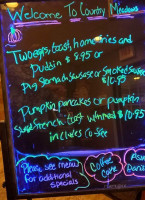 Welcome To Country Meadows
Two eggs, toast, homefries and
Puddin $8.95 or
Pig Stomach, Sausage or Smoked Sausage
$10.95
Pumpkin pancakes or pumpkin
French toast w/meat $10.95
includes Coffee
Please see menu
for additional
specials
Coffee
Cake